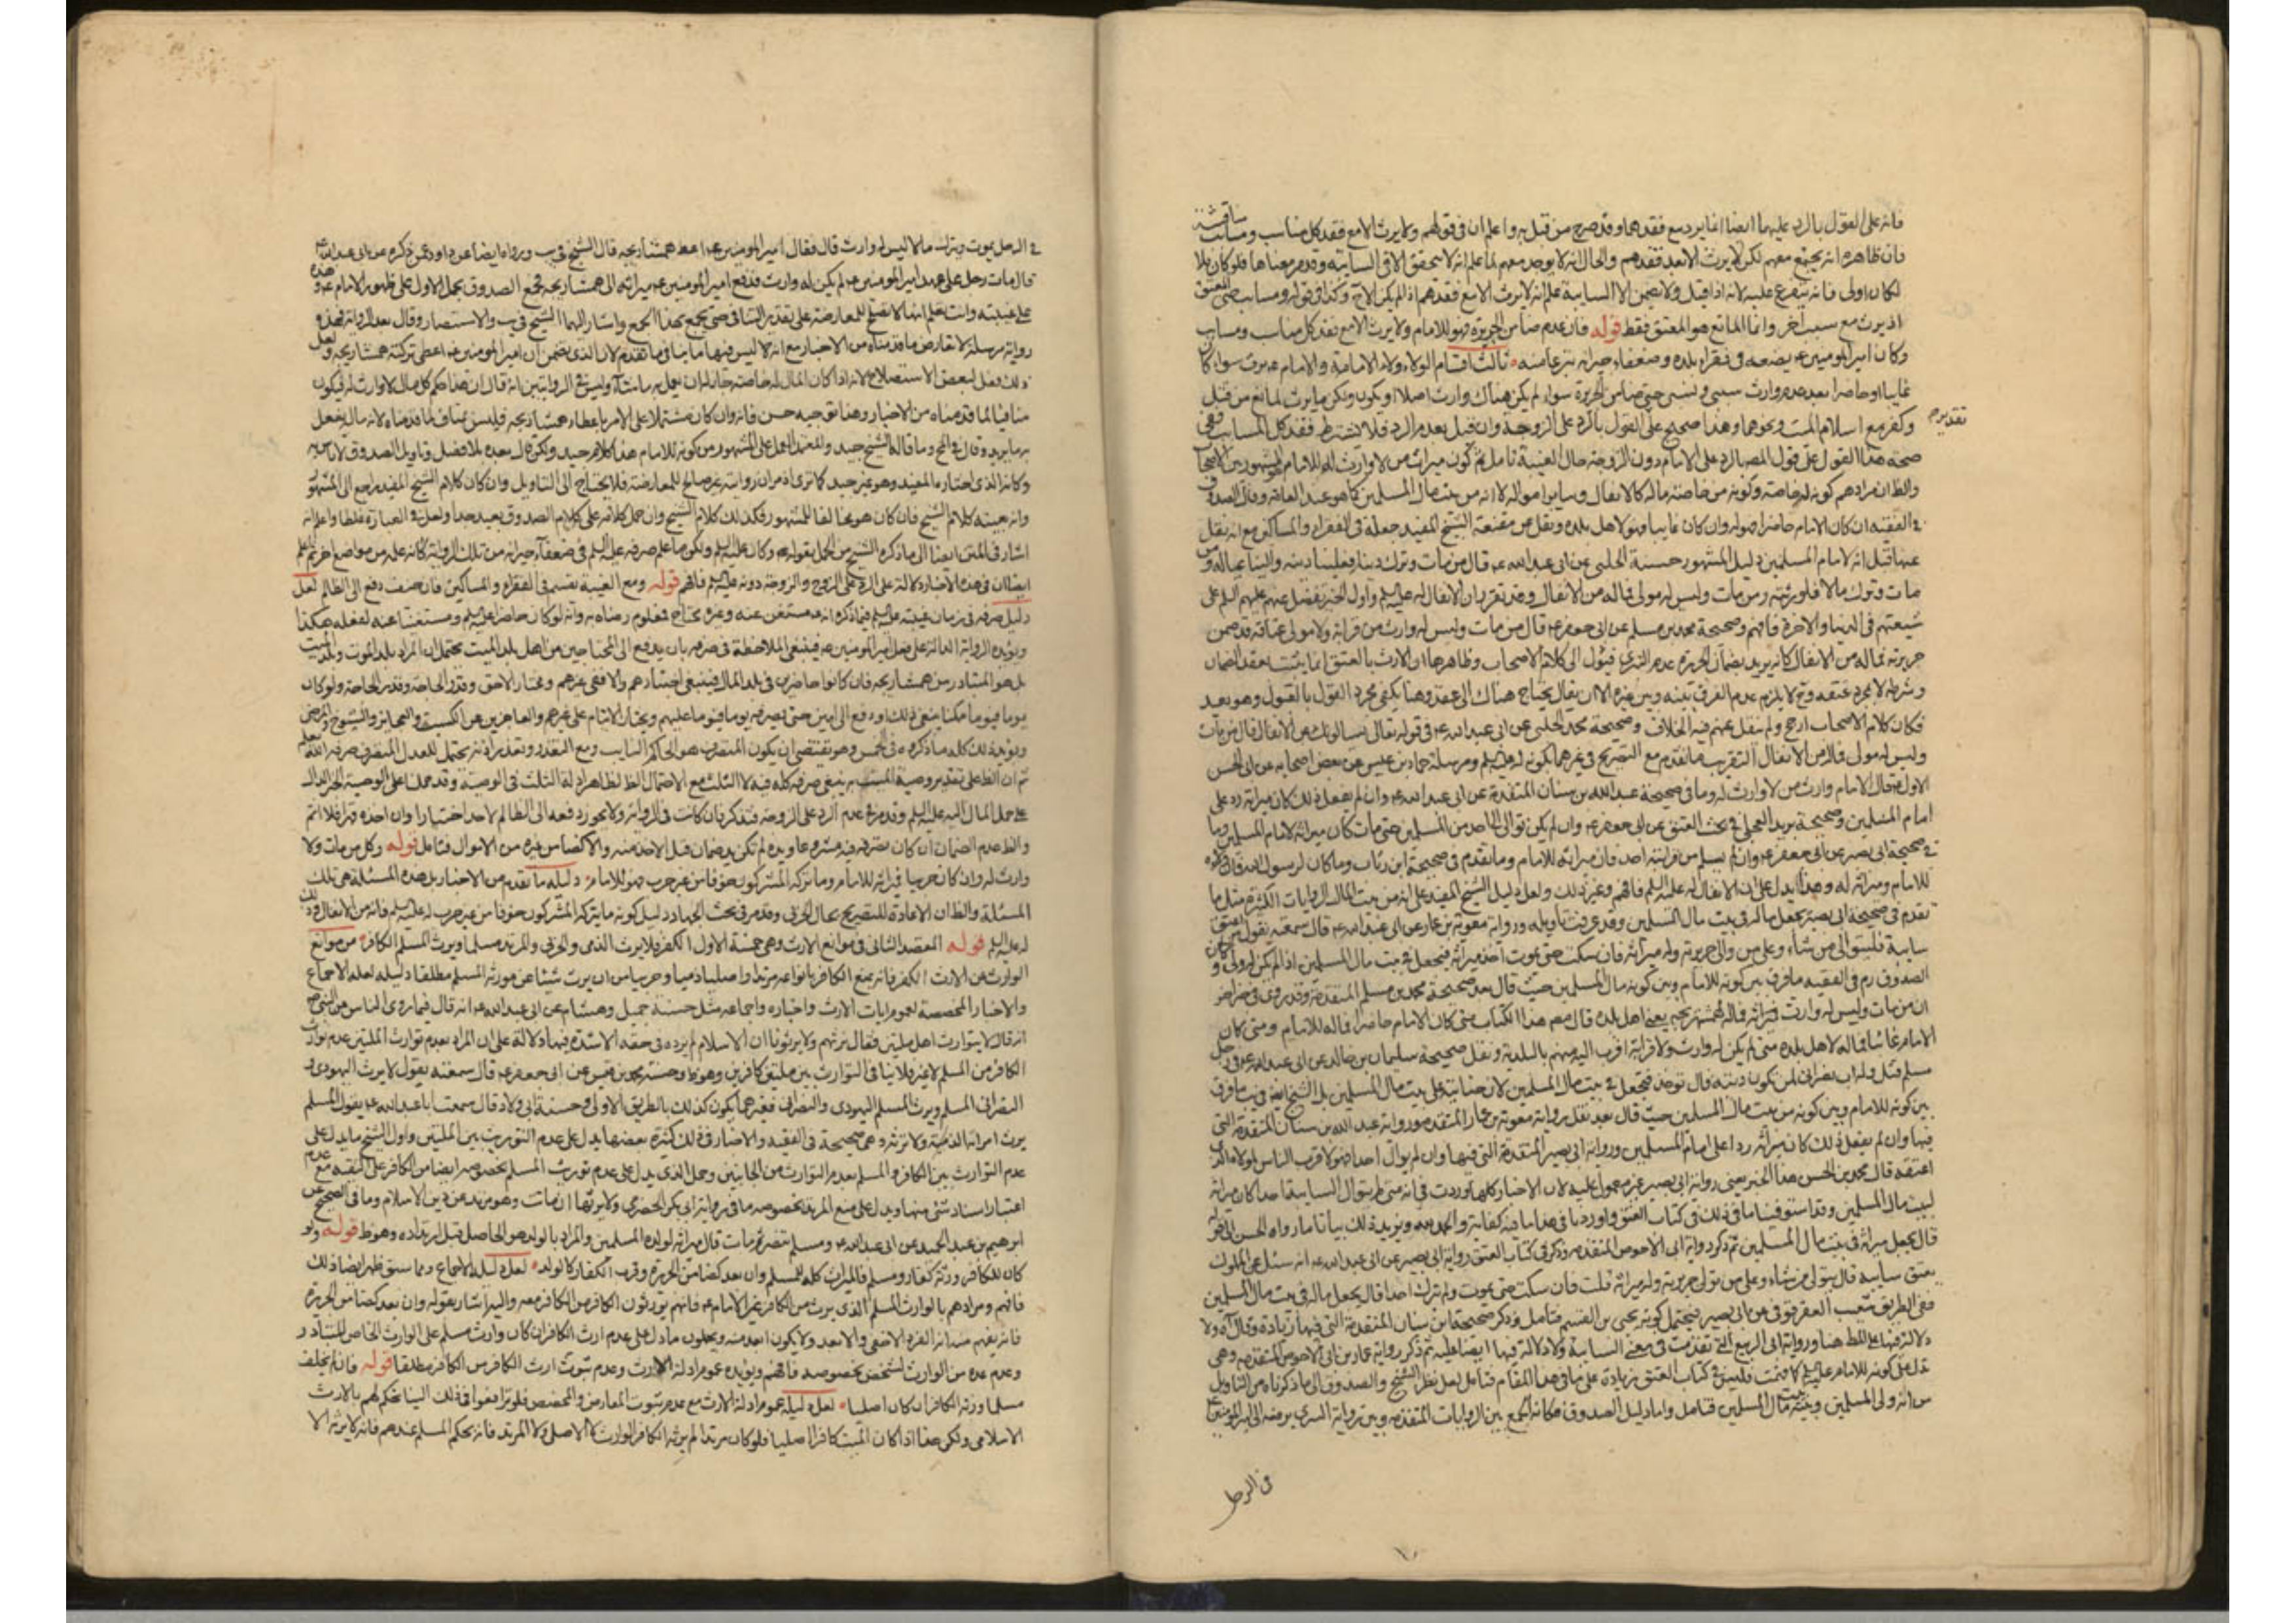 فانه على القول بالرد عليهما ايضا انما يرد مع فقدهما وقد صرح من قبل به واعلم ان في قولهم ولا يرث الا مع فقد كل مناسب ومسابب مناقشة
فان ظاهره انه يجتمع معهم لكن لا يرث الا بعد فقدهم والحال انه لا يوجد معهم لما علم انه لا يتحقق الا في السايبة وقد مر معناها فلو كان بلا
لكان اولى فانه يتفرع عليه لانه اذا قيل ولا يضمن الا السايبة علم انه لا يرث الا مع فقدهم اذ لم يكن الا ح وكذا في قوله ومسابب حتى المعتق
اذ يرث مع سبب آخر وانما المانع هو المعتق فقط قوله فان عدم ضامن الجريرة فهو للامام ولا يرث الا مع فقد كل مناسب ومسابب
وكان امير المومنين ع يضعه في فقراء بلده وضعفاء جيرانه تبرعا منه ثالث اقسام الولاء ولاء الامامة والامام ع يرث سواء كان
غايبا او حاضرا بعد عدم وارث سببي ونسبي حتى ضامن الجريرة سواء لم يكن هناك وارث اصلا او يكون ولكن ما يرث لمانع من قتل
تقديره
وكفر مع اسلام الميت ونحوهما وهذا صحيح على القول بالرد على الزوجة وان قيل بعدم الرد فلا يشترط فقد كل المسابب
صحة هذا القول على قول المص بالرد على الامام دون الزوجة حال الغيبة تامل ثم كون ميراث من لا وارث له للامام هو المشهور بين الاصحاب
والظ ان مرادهم كونه له خاصة وكونه من خاصة ماله كالانفال وساير امواله لا انه من بيت مال المسلمين كما هو عند العامة وقال الصدوق
في الفقيه ان كان الامام حاضرا فهو له وان كان غايبا فهو لاهل بلده ونقل عن مقنعة الشيخ المفيد جعله في الفقراء والمساكين مع انه نقل
عنها قبل انه لامام المسلمين دليل المشهور حسنة الحلبي عن ابي عبد الله ع قال من مات وترك دينا فعلينا دينه والينا عياله ومن
مات وترك مالا فلورثته ومن مات وليس له مولى فماله من الانفال وقد تقرر ان الانفال له عليه السلم واول الخبر تفضل عنهم عليهم السلم على
شيعتهم في الدنيا والاخرة فافهم وصحيحة محمد بن مسلم عن ابي جعفر ع قال من مات وليس له وارث من قرابة ولا مولى عتاقه قد ضمن
جريرته فماله من الانفال كانه يريد بضمان الجريرة عدم التبري فيؤل الى كلام الاصحاب وظاهرها ان الارث بالعتق انما يثبت بعقد الضمان
وشرطه لا بمجرد عتقه وح لا يلزم عدم الفرق بينه وبين غيره الا ان يقال يحتاج هناك الى عقد وهنا يكفي مجرد القول بالقبول وهو بعيد
فكان كلام الاصحاب ارجح ولم ينقل عنهم فيه الخلاف وصحيحة محمد الحلبي عن ابي عبد الله ع في قوله تعالى يسالونك عن الانفال قال من مات
وليس له مولى فماله من الانفال التقريب ما تقدم مع التصريح في غيرهما بكونه له عليه السلم ومرسلة حماد بن عيسى عن بعض اصحابه عن ابي الحسن
الاول ع قال الامام وارث من لا وارث له وما في صحيحة عبد الله بن سنان المتقدمة عن ابي عبد الله ع وان لم يفعل ذلك كان ميراثه رد على
امام المسلمين وصحيحة بريد العجلي في بحث العتق عن ابي جعفر ع وان لم يكن توالى الى احد من المسلمين حتى مات كان ميراثه لامام المسلمين وما
في صحيحة ابي بصير عن ابي جعفر ع وان لم يسلم من قرابته احد فان ميراثه للامام وما تقدم في صحيحة ابن رئاب وما كان لرسول الله فان
للامام وميراثه له وهذا يدل على ان الانفال له عليه السلم فافهم وغير ذلك ولعل دليل الشيخ المفيد على انه من بيت المال الروايات الكثيرة مثل ما
تقدم في صحيحة ابي بصير يجعل ماله في بيت مال المسلمين وقد عرفت تاويله ورواية معوية بن عمار عن ابي عبد الله ع قال سمعته يقول من اعتق
سايبة فليتوالى من شاء وعلى من والى جريرته وله ميراثه فان سكت حتى يموت اخذ ميراثه فيجعل في بيت مال المسلمين اذا لم يكن له ولي وكان
الصدوق ره في الفقيه ما فرق بين كونه للامام وبين كونه مال المسلمين حيث قال بعد صحيحة محمد بن مسلم المتقدمة وقد روى في خبر اخر
ان من مات وليس له وارث فميراثه لهمشهريجه يعني اهل بلده قال مص هذا الكتاب متى كان الامام حاضرا فماله للامام ومتى كان
الامام غائبا فماله لاهل بلده متى لم يكن له وارث ولا قرابة اقرب اليه منهم بالبلدية ونقل صحيحة سليمان بن خالد عن ابي عبد الله ع في رجل
مسلم قتل وله اب نصراني لمن تكون ديته قال توخذ فتجعل في بيت مال المسلمين لان جنايته على بيت مال المسلمين بل الشيخ ايضا في يب ما فرق
بين كونه للامام وبين كونه من بيت مال المسلمين حيث قال بعد نقل رواية معوية بن عمار المتقدمة ورواية عبد الله بن سنان المتقدمة التي
فيها وان لم يفعل ذلك كان ميراثه ردا على امام المسلمين ورواية ابي بصير المتقدمة التي فيها وان لم يوال احدا فهو لاقرب الناس لمولاه الذي
اعتقه قال محمد بن الحسن هذا الخبر يعني رواية ابي بصير غير معمول عليه لان الاخبار كلها وردت في انه متى لم يتوال السايبة احدا كان ميراثه
لبيت مال المسلمين وقد استوفينا ما في ذلك في كتاب العتق واوردنا في هذا ما فيه كفاية والحمد لله ونزيد ذلك بيانا ما رواه الحسن
قال يجعل ميراثه في بيت مال المسلمين ثم ذكر رواية ابي الاحوص المتقدمة وذكر في كتاب العتق رواية ابي بصير عن ابي عبد الله ع انه سئل عن المملوك
يعتق سايبة قال يتولى من شاء وعلى من تولى جريرته وله ميراثه قلت فان سكت حتى يموت ولم يترك احدا قال يجعل ماله في بيت مال المسلمين
ففي الطريق شعيب العقرقوفي عن ابي بصير فيحتمل كونه يحيى بن القسم فتامل وذكر صحيحة ابن سنان المتقدمة التي فيها زيادة وقال آه ولا
دلالة فيها على المط هنا ورواية ابي الربيع التي تقدمت في معنى السايبة ولا دلالة فيها ايضا عليه ثم ذكر رواية عمار بن ابي الاحوص المتقدمة وهي
تدل على كونه للامام عليه السلم كما قدمت فليس في كتاب العتق زيادة على ما في هذا المقام فتامل لعل نظر الشيخ والصدوق الى ما ذكرناه من التاويل
من انه ولي المسلمين وبيته بيت مال المسلمين فتامل واما دليل الصدوق فكانه الجمع بين الروايات المتقدمة وبين رواية السري يرفعه الى امير المومنين ع
في الرجل
في الرجل يموت ويترك مالا ليس له وارث قال فقال امير المومنين ع اعط همشاريجه قال الشيخ في يب ورواه ايضا عن داود عمن ذكره عن ابي عبد الله ع
قال مات رجل على عهد امير المومنين ع لم يكن له وارث فدفع امير المومنين ع ميراثه الى همشاريجه فجمع الصدوق بحمل الاول على ظهور الامام ع وهذه
على غيبته وانت تعلم انها لا تصلح للمعارضة على تقدير التنافي حتى يجمع بهذا الجمع واشار اليهما الشيخ في يب والاستبصار وقال بعد الرواية فهذه
رواية مرسلة لا تعارض ما قدمناه من الاخبار مع انه لا ليس فيها ما ينافي ما تقدم لان الذي يتضمن ان امير المومنين ع اعطى تركته همشاريجه ولعل
ذلك فعل لبعض الاستصلاح لانه اذا كان المال له خاصة جاز له ان يعمل به ما شاء وليس في الروايتين انه قال ان هذا حكم كل مال لا وارث له فيكون
منافيا لما قدمناه من الاخبار وهنا توجيه حسن فانه وان كان مشتملا على الامر باعطاء همشاريجه فليس بمناف لما قدمناه لانه ماله يفعل
به ما يريد وقال في الخ وما قاله الشيخ جيد والمعتمد العمل على المشهور من كونه للامام هذا كلام جيد
وكانه الذي اختاره المفيد وهو غير جيد كما ترى اذ مر ان روايته غير صالح للمعارضة فلا يحتاج الى التاويل وان كان كلام الشيخ المفيد يراجع الى المشهور
وانه بعينه كلام الشيخ فان كان هو مخالفا للمشهور فكذلك كلام الشيخ وان حمل كلامه على كلام الصدوق بعيد جدا ولعل في العبارة غلطا واعلم انه
اشار في المتن ايضا الى ما ذكره الشيخ من الحمل بقوله وكان عليه السلم ولكن ما علم صرفه عليه السلم في ضعفاء جيرانه من تلك الرواية كانه علم من مواضع اخر ثم اعلم
ايضا ان في هذه الاخبار دلالة على الرد على الزوج والزوجة دونه عليه السلم فافهم قوله ومع الغيبة يقسم في الفقراء والمساكين فان خيف دفع الى الظالم لعل
دليل صرفه في زمان غيبته عليه السلم فيما ذكره انه ع مستغن عنه وغيره محتاج فمعلوم رضاه به وانه لو كان حاضرا عليه السلم ومستغنيا عنه لفعله هكذا
ويؤيده الرواية الدالة على فعل امير المومنين ع فينبغي الملاحظة في صرفه بان يدفع الى المحتاجين من اهل بلد الميت يحتمل ان المراد بلد الموت وبلد الميت
بل هو المتبادر من همشاريجه فان كانوا حاضرين في بلد المال فينبغي اختيارهم والا ففي غيرهم ويختار الاحق وقدر الحاجة وقدر الحاجة ولو كان
يوما فيوما ممكنا ينبغي ذلك او دفع الى امين حتى يصرفه يوما فيوما عليهم ويختار الايتام على غيرهم والعاجزين عن الكسب والعجايز والشيوخ والمرضى
ويؤيد ذلك كله ما ذكره في الخمس وهو يقتضي ان يكون المتصرف هو الحاكم النايب ومع التعذر وتعذر اذنه يحتمل للعدل المتصرف صرفه الله يعلم
ثم ان الظ على تقدير وصية الميت به ينبغي صرفه كله فيه لا الثلث مع الاحتمال الظ لظاهر ادلة الثلث في الوصية
على حمل المال اليه عليه السلم وقد مر في عدم الرد على الزوجة فتذكر بان كانت في الرواية ولا يجوز دفعه الى الظالم لاحد اختيارا وان اخذه قهرا فلا اثم
والظ عدم الضمان ان كان تصرفه فيه مشروعا ويده لم تكن يد ضمان قبل الاخذ منه والا كضامن غيره من الاموال فتامل قوله وكل من مات ولا
وارث له وان كان حربيا فميراثه للامام وما تركه المشركون خوفا من غير حرب فهو للامام دليله ما تقدم من الاخبار بل هذه المسئلة هي تلك
المسئلة والظ ان الاعادة للتصريح بحال الحربي وقد مر في بحث الجهاد دليل كونه ما يتركه المشركون خوفا من غير حرب له عليه السلم فانه من الانفال وذلك
له عليه السلم قوله المقصد الثاني في موانع الارث وهي خمسة الاول الكفر فلا يرث الذمي والحربي والمرتد مسلما ويرث المسلم الكافر من موانع
الوارث عن الارث الكفر فانه يمنع الكافر بانواعه مرتدا واصليا ذميا وحربيا من ان يرث شيئا عن مورثه المسلم مطلقا دليله لعله الاجماع
والاخبار المخصصة لعموم ايات الارث واخباره واجماعه مثل حسنة جميل وهشام عن ابي عبد الله ع انه قال فيما روى الناس عن النبي ص
انه قال لا يتوارث اهل ملتين فقال نرثهم ولا يرثونا ان الاسلام لم يزده في حقه الا شدة فيها دلالة على ان المراد بعدم توارث الملتين عدم توارث
الكافر من المسلم لا غير فلا ينافي التوارث بين ملتي كافرين وهو ظ وحسنة محمد بن قيس عن ابي جعفر ع قال سمعته يقول لا يرث اليهودي و
النصراني المسلم ويرث المسلم اليهودي والنصراني فغيرهما يكون كذلك بالطريق الاولى وحسنة ابي ولاد قال سمعت ابا عبد الله ع يقول المسلم
يرث امراته الذمية ولا ترثه وهي صحيحة في الفقيه والاخبار في ذلك كثيرة بعضها يدل على عدم التوريث بين الملتين واول الشيخ ما يدل على
عدم التوارث بين الكافر والمسلم بعدم التوارث من الجانبين وحمل الذي يدل على عدم توريث المسلم بخصوصه ايضا من الكافر على التقية مع عدم
اعتبار اسناد شئ منها ويدل على منع المرتد بخصوصه ما في رواية ابي بكر الحضرمي ولا يرثها ان مات وهو مرتد عن دين الاسلام وما في الصحيح عن
ابرهيم بن عبد الحميد عن ابي عبد الله ع ومسلم تنصر ثم مات قال ميراثه لولده المسلمين والمراد بالولد هو الحاصل قبل ارتداده وهو ظ قوله ولو
كان للكافر ورثة كفار ومسلم فالميراث كله للمسلم وان بعد كضامن الجريرة وقرب الكفار كالولد لعل دليله الاجماع ومما سبق ظهر ايضا ذلك
فافهم ومرادهم بالوارث المسلم الذي يرث من الكافر غير الامام ع فانهم يورثون الكافر من الكافر معه واليه اشار بقوله وان بعد كضامن الجريرة
فانه يفهم منه انه الفرد الاخفى والابعد ولا يكون ابعد منه ويحملون ما دل على عدم ارث الكافر ان كان وارث مسلم على الوارث الخاص للتبادر
وعدم عده من الوارث لشخص بخصوصه فافهم ويؤيده عموم ادلة الارث وعدم ثبوت ارث الكافر من الكافر مطلقا قوله فان لم يخلف
مسلما ورثه الكافر ان كان اصليا لعل دليله عموم ادلة الارث مع عدم ثبوت المعارض والمخصص فلو ترافعوا في ذلك الينا يحكم لهم بالارث
الاسلامي ولكن هذا اذا كان الميت كافرا اصليا فلو كان مرتدا لم يرثه الكافر الوارث لا الاصلي ولا المرتد فانه بحكم المسلم عندهم فانه لا يرثه الا